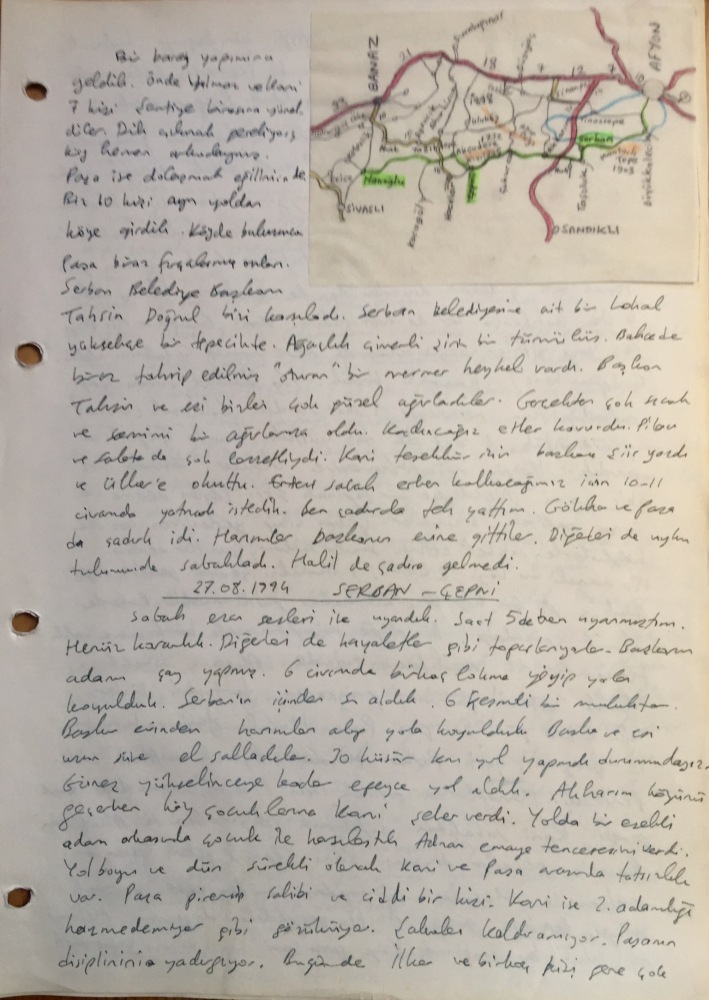 Bir baraj yapımına
geldik. Önde Yılmaz ve Kani
7 kişi Şantiye binasına yönel
diler. Dik çıkmak gerekiyor,
köy hemen arkadaymış.
Paşa ise dolaşmak eğiliminde.
Biz 10 kişi aynı yoldan
köye girdik. Köyde bulununca
Paşa biraz fırçalamış onları.
Serban Belediye Başkanı
Tahsin Doğrul bizi karşıladı. Serban belediyesine ait bir lokal
yüksekçe bir tepecikte. Ağaçlık çimenli şirin bir tümülüs. Bahçede
biraz tahrip edilmiş "oturan" bir mermer heykel vardı. Başkan
Tahsin ve eşi bizleri çok güzel ağırladılar. Gerçekten çok sıcak
ve samimi bir ağırlama oldu. etler kavurdu. Pilav
ve salata da çok lezzetliydi. Kani teşekkür için başkana şiir yazdı
ve Ülker'e okuttu. Ertesi sabah erken kalkacağımız için 10-11
civarında yatmak istedik. Ben çadırda tek yattım. Gökhan ve Paşa
da çadırda idi. Hanımlar Başkanın evine gittiler. Diğerleri de uyku
tulumunda sabahladı. Halil de çadıra gelmedi.
27.08.1994 SERBAN - ÇEPNİ
Sabah ezan sesleri ile uyandık. Saat 5'de ben uyanmıştım.
Henüz karanlık. Diğerleri de hayaletler gibi toparlanıyorlar. Başkanın
adamı çay yapmış. 6 civarında birkaç lokma yiyip yola
koyulduk. Serban'ın içinden su aldık. 6 çeşmeli bir
Başkan evinden hanımları alıp yola koyulduk. Başkan ve eşi
uzun süre el salladılar. 30 küsür km yol yapmak durumundayız.
Güneş yükselinceye kadar epeyce yol aldık. Akharım köyünü
geçerken köy çocuklarına Kani şeker verdi. Yolda bir eşekli
adam arkasında çocuk ile karşılaştık. Adnan emaye tenceresini verdi.
Yol boyu ve dün sürekli olarak Kani ve Paşa arasında tatsızlık
var. Paşa prensip sahibi ve ciddi bir kişi. Kani ise 2. adamlığı
hazmedemiyor gibi gözüküyor. Şakaları kaldıramıyor. Paşanın
disiplinini yadırgıyor. Bugün de İlker ve birkaç kişi gene çok
BANAZ
AFYON
SİVASLI
SANDIKLI
Hanoğlu
Serban
Büyükkalecik
Taşoluk
Kocatepe
1903
21
18
7
12
7